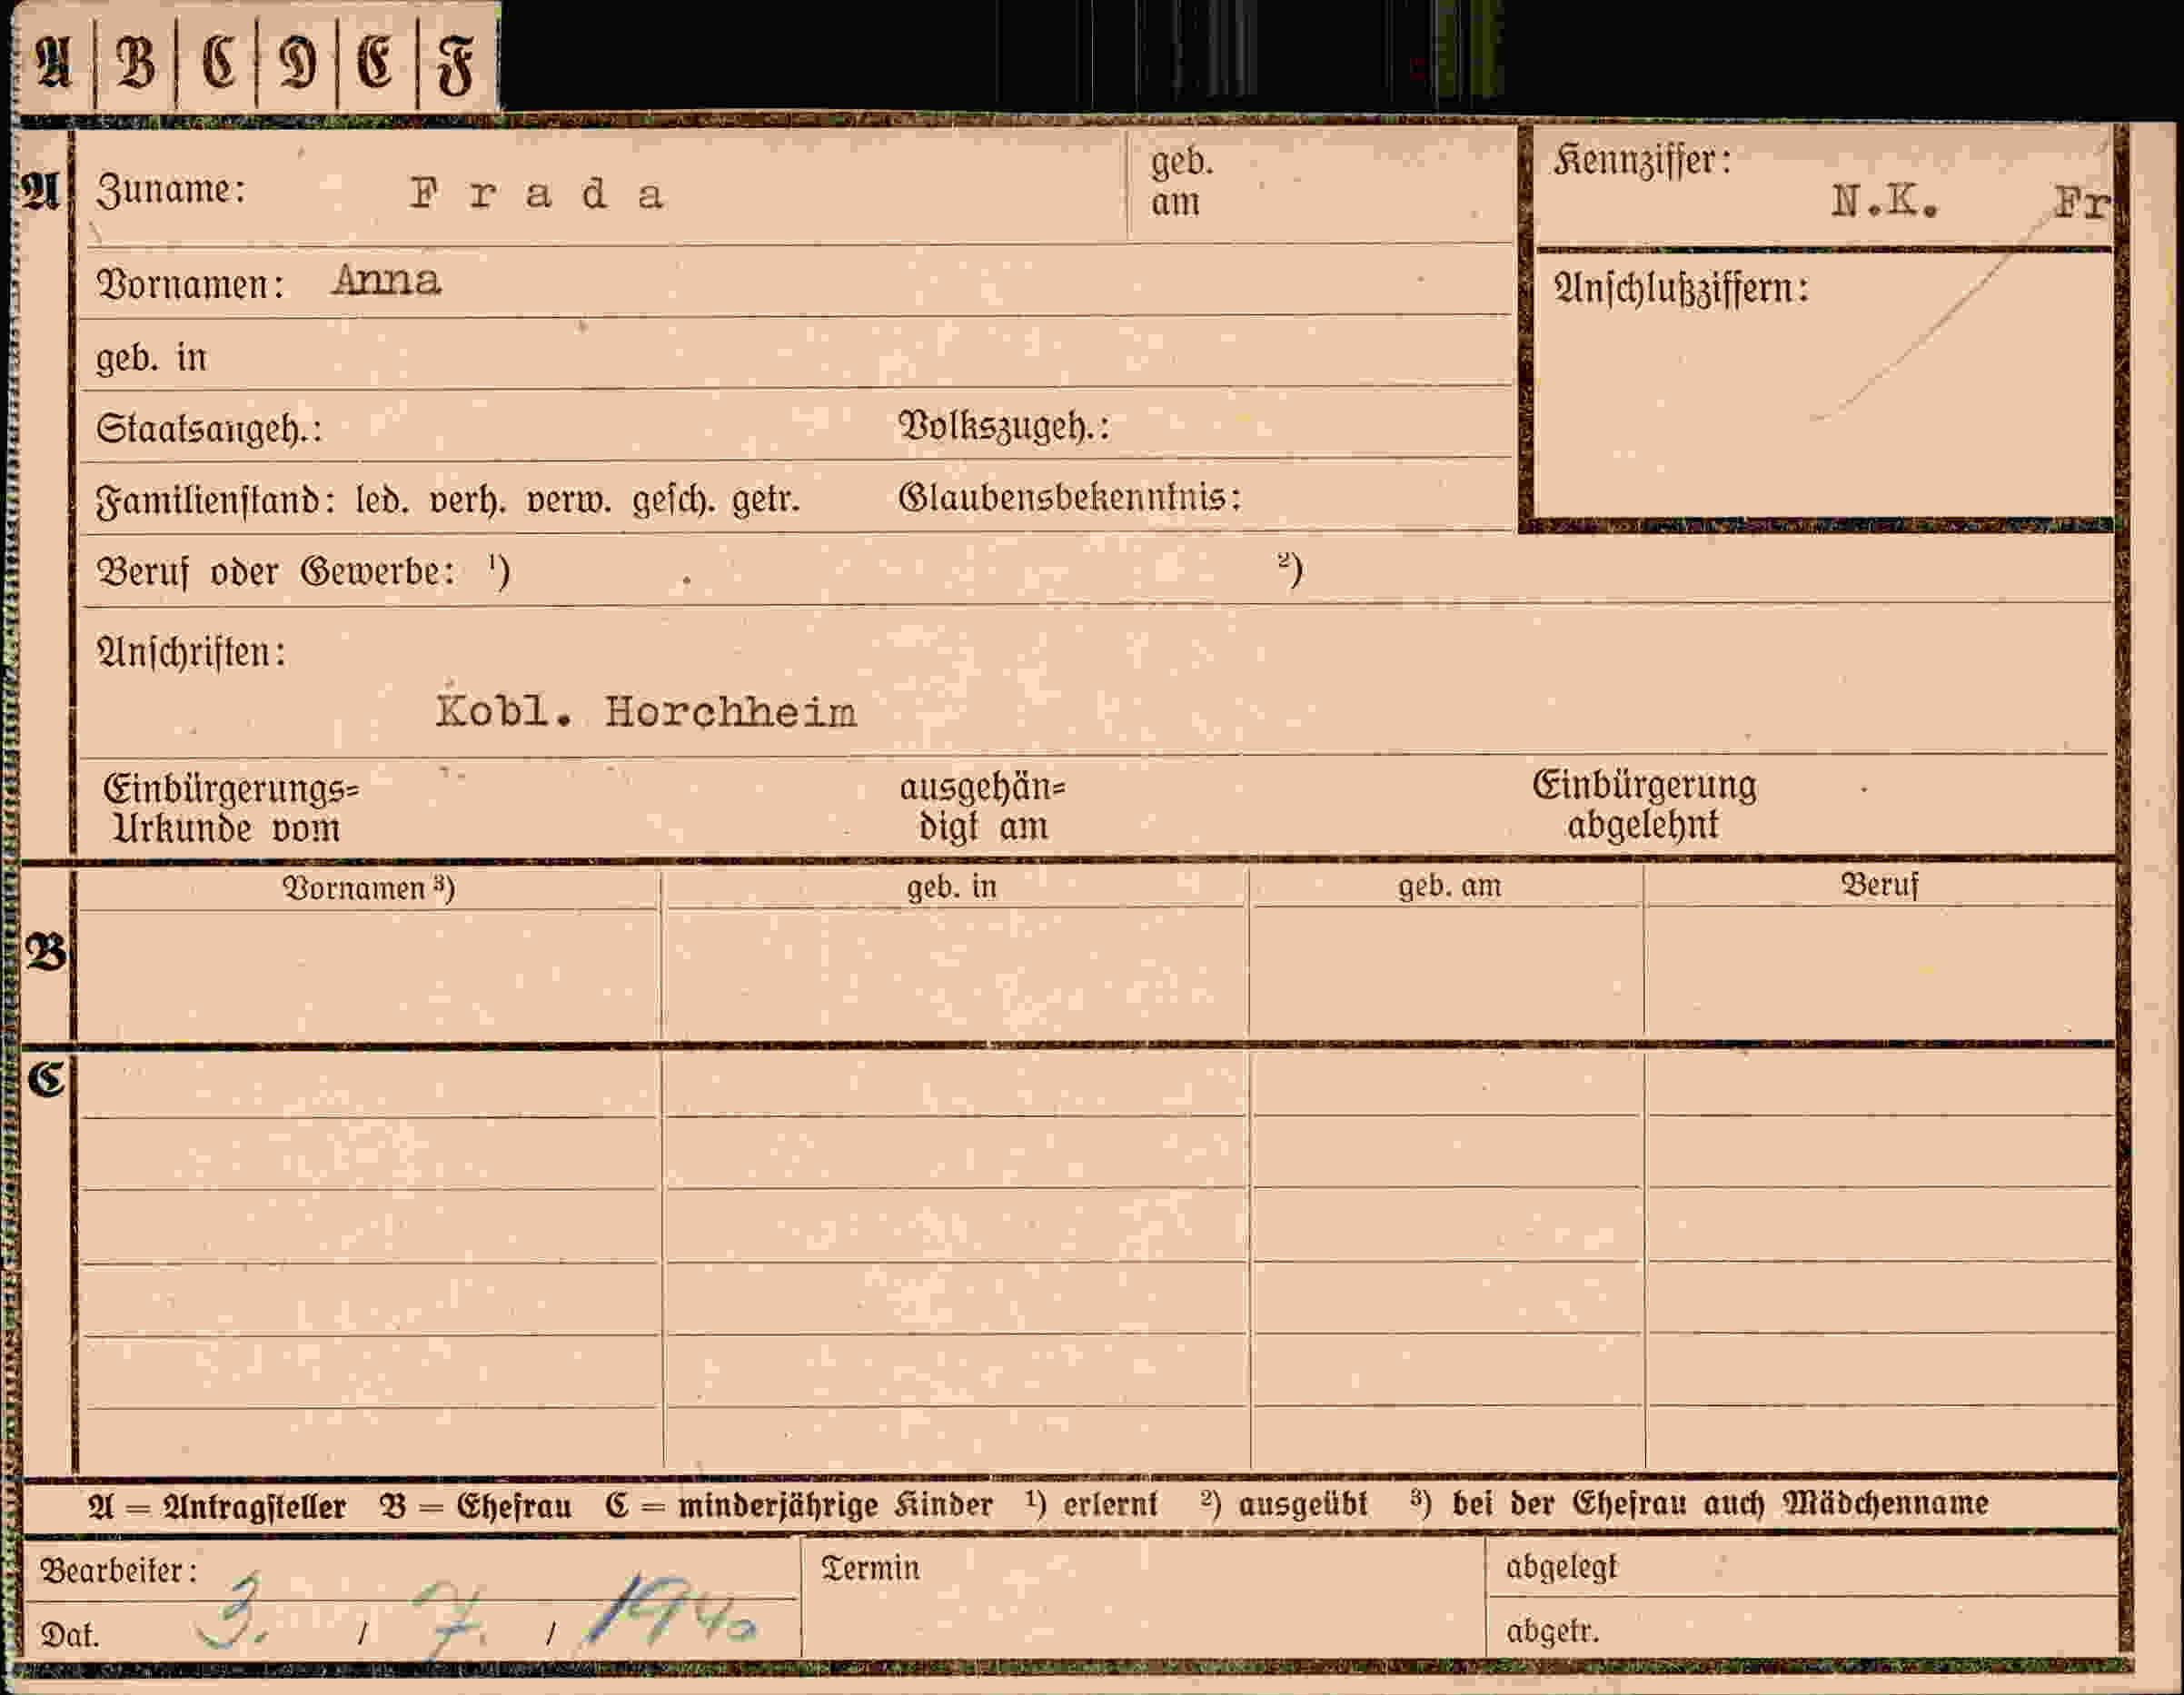 A | B | C | D | E | F
A Zuname: F r a d a geb. am
Kennziffer: N.K. Fr
Vornamen: Anna
Anschlußziffern:
geb. in
Staatsangeh.: Volkszugeh.:
Familienstand: led. verh. verw. gesch. getr. Glaubensbekenntnis:
Beruf oder Gewerbe: ¹) ²)
Anschriften:
Kobl. Horchheim
Einbürgerungs= ausgehän= Einbürgerung
Urkunde vom digt am abgelehnt
Vornamen ³) geb. in geb. am Beruf
B
C
A = Antragsteller B = Ehefrau C = minderjährige Kinder ¹) erlernt ²) ausgeübt ³) bei der Ehefrau auch Mädchenname
Bearbeiter: Termin abgelegt
Dat. 3. / 7. / 1940 abgetr.